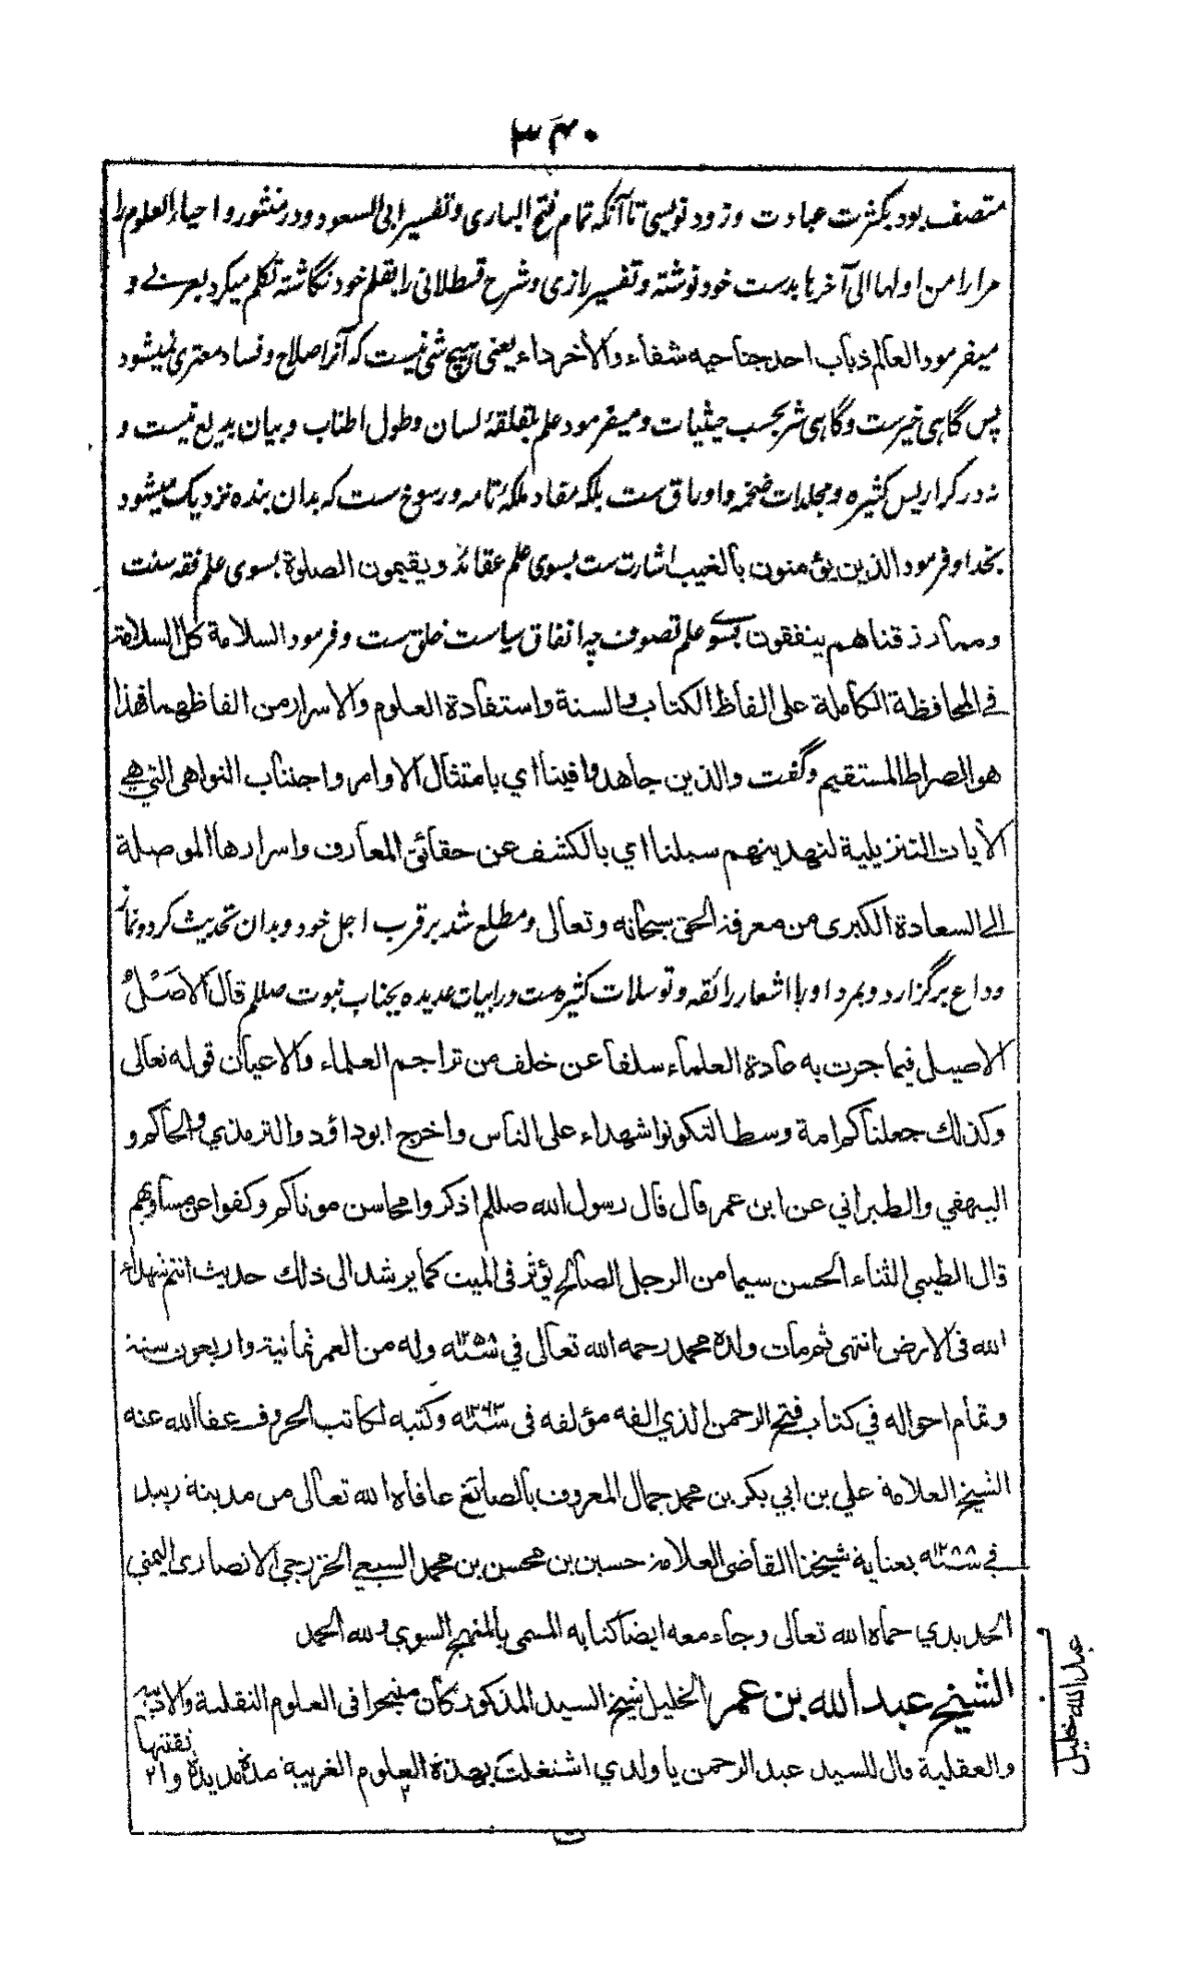 ۳۴۰
متصف بود بکثرت عبادت و زود نویسی تا آنکه تمام فتح الباری و تفسیر ابی السعود و در منثور و احیاء العلوم را
مرارا من اولها الی آخرها بدست خود نوشته و تفسیر رازی و شرح قسطلانی را بقلم خود نگاشته تکلم میکرد بعربی و
میفرمود العالم ذباب احد جناحیه شفاء والاخر داء یعنی هیچ شی نیست که آنرا صلاح و فساد معتری نمیشود
پس گاهی خیرست و گاهی شر بحسب حیثیات و میفرمود علم بلقلقهٔ لسان و طول اطناب و بیان بدیع نیست و
نه در کراریس کثیره و مجلدات ضخمه و اوراق ست بلکه مفاد ملکهٔ تامه و رسوخ ست که بدان بنده نزدیک میشود
بخدا و فرمود الذین یؤمنون بالغیب اشارت ست بسوی علم عقائد و یقیمون الصلوة بسوی علم فقه سنت
ومما رزقناهم ینفقون بسوی علم تصوف چه انفاق سیاست خلق ست و فرمود السلامة کل السلامة
فی المحافظة الکاملة علی الفاظ الکتاب والسنة واستفادة العلوم والاسرار من الفاظهما فهذا
هو الصراط المستقیم و گفت والذین جاهدوا فینا ای بامتثال الاوامر واجتناب النواهی التی هی
الایات التنزیلیة لنهدینهم سبلنا ای بالکشف عن حقائق المعارف واسرارها الموصلة
الی السعادة الکبری من معرفة الحق سبحانه وتعالی و مطلع شد بر قرب اجل خود و بدان تحدیث کرد و نماز
وداع برگزارد و بمرد او را اشعار رائقه و توسلات کثیره ست در ابیات عدیده بجناب نبوت صللم قال الاَصْلُ
الاصیل فیما جرت به عادة العلماء سلفا عن خلف من تراجم العلماء والاعیان قوله تعالی
وکذلك جعلناکم امة وسطا لتکونوا شهداء علی الناس واخرج ابوداؤد والترمذی والحاکم و
البیهقی والطبرانی عن ابن عمر قال قال رسول الله صللم اذکروا محاسن موتاکم وکفوا عن مساویهم
قال الطیبی الثناء الحسن سیما من الرجل الصالح یؤثر فی المیت کما یرشد الی ذلك حدیث انتم شهداء
الله فی الارض انتهی ثم مات ولده محمد رحمه الله تعالی فی سنه ۱۲۵۸ وله من العمر ثمانیة واربعون سنة
وتمام احواله فی کتاب فتح الرحمن الذی الفه مؤلفه فی سنه ۱۲۶۳ وکتبه لکاتب الحروف عفا الله عنه
الشیخ العلامة علی بن ابی بکر بن محمد جمال المعروف بالصائغ عافاه الله تعالی من مدینة زبید
فی سنه ۱۲۸۸ بعنایة شیخنا القاضی العلامة حسین بن محسن بن محمد السبیعی الخزرجی الانصاری الیمنی
الحدیدی حماه الله تعالی وجاء معه ایضا کتابه المسمی بالمنهج السوی ولله الحمد
الشیخ عبد الله بن عمر الخلیل شیخ السید المذکور کان متبحرا فی العلوم النقلیة والادبیة
والعقلیة قال للسید عبد الرحمن یا ولدی اشتغلت بهذة العلوم الغریبة مدة مدیدة و اتقنتها
عبد الله خلیل